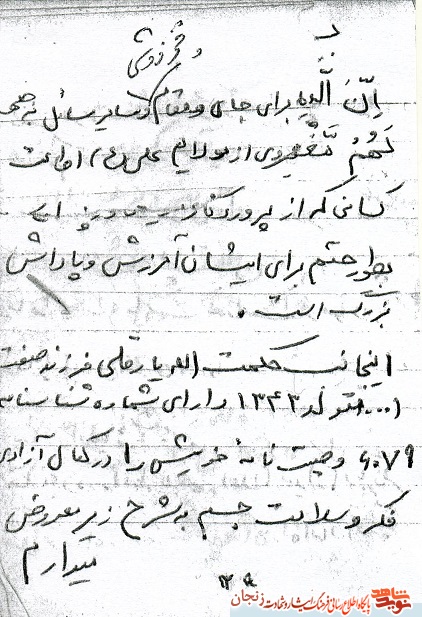 و فخر فروشی
اِنَّ الَّذینَ برای جای و مقام و سایر مسائل به
لَهُمْ مَّغْفِ پیروی از مولایم علی (ع) اطاعت
کسانی که از پروردگار
بطور حتم برای ایشان آمرزش و پاداش
بزرگ است.
اینجانب حکمت اله یارقلی فرزند صفت
ا... متولد ۱۳۴۳ دارای شماره شناسنامه
۶۰۷۹ وصیت نامهٔ خویش را در کمال آزادی
فکر و سلامت جسم به شرح زیر معروض
میدارم
نوید شاهد
پایگاه اطلاع رسانی فرهنگ ایثار و شهادت زنجان